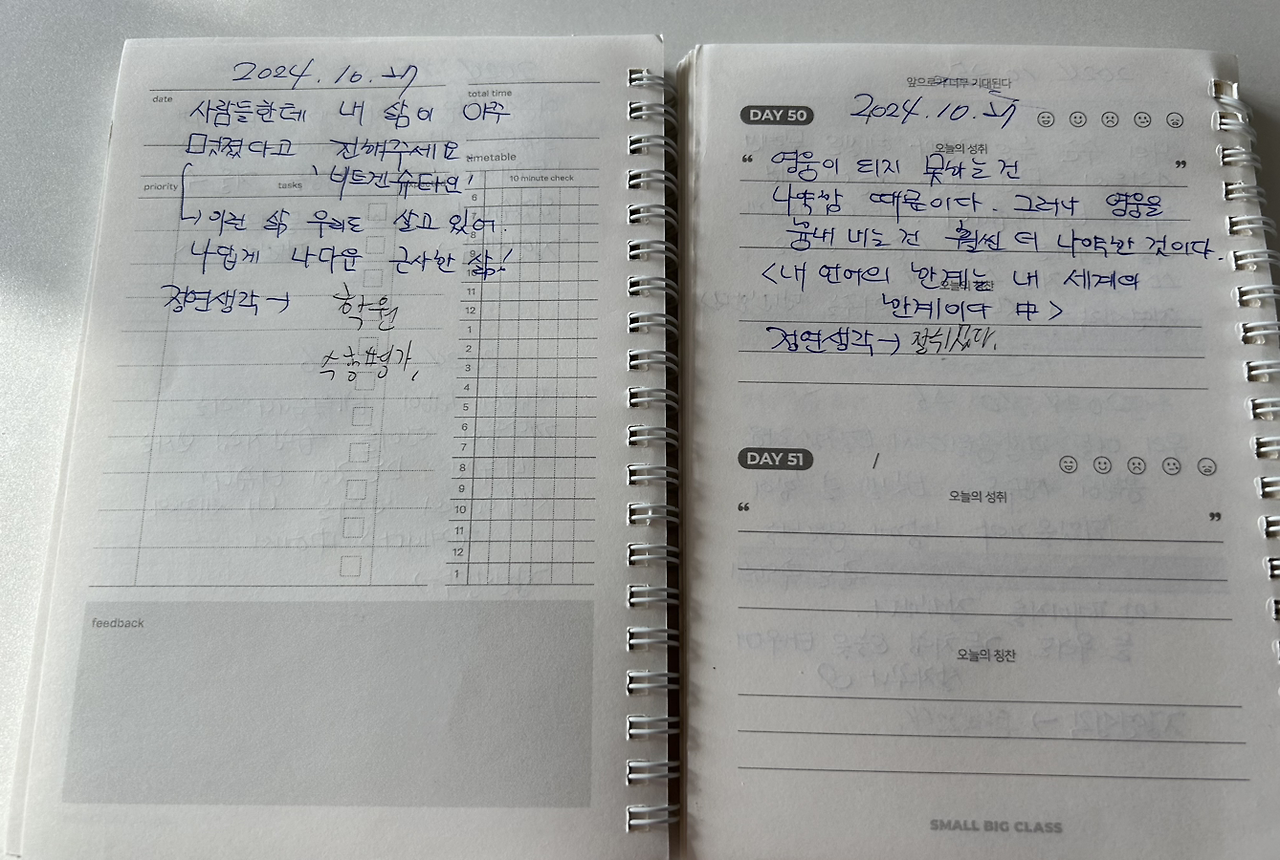 2024. 10.
date
total time
사람들한테 내 삶이 아주
멋졌다고 전해주세요
timetable
'비트겐슈타인'
priority
tasks
10 minute check
6
→ 이런 삶 우리도 살고 있어.
8
나답게 나다운 근사한 삶!
10
정연생각→ 학원
수행평가,
11
12
1
2
3
4
5
6
7
8
9
10
11
12
1
feedback
앞으로가 너무 기대된다
DAY 50
2024. 10.
오늘의 성취
“ 영웅이 되지 못하는 건 ”
나약함 때문이다. 그러나 영웅을
흉내 내는 건 훨씬 더 나약한 것이다.
<내 언어의 한계는 내 세계의
오늘의 칭찬
한계이다 中>
정연생각→ 잘쉬었다.
DAY 51
/
오늘의 성취
“ ”
오늘의 칭찬
SMALL BIG CLASS